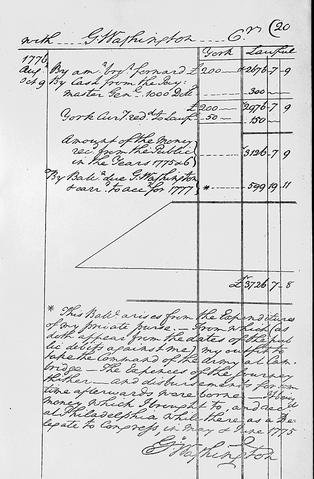 with G. Washington Cr. (20
York Lawful
1776
Augt By amt brot forward £200 — £2676-7-9
Oct 9 By Cash from the Pay:
master Genl. 1000 Dolls 300 —
£200 — £2976-7-9
York Curr.y red.d to Lawful 50 — 150 —
Amount of the Money
rec.d from the Public
in the Years 1775 & 6 £3126-7-9
*By Bal.e due G. Washington
& carr.d to acct for 1777 * 599 19 11
£3726-7-8
* This Bal.e arises from the Expenditures
of my private purse. — From which (as
doth appear from the dates of the pub
lic debits against me) my outfit to
take the Command of the Army at Cam
bridge — The Expences of the Journey
thither — and disbursements for some
time afterwards were borne — It being
money which I brought to, and rec.d
at Philadelphia while there as a De
legate to Congress, in May & June 1775
G. Washington